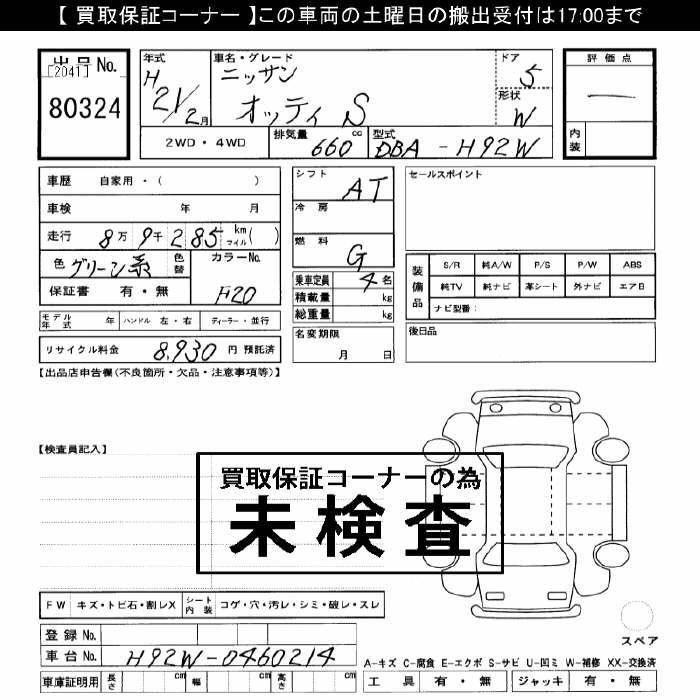 【 買取保証コーナー 】この車両の土曜日の搬出受付は17:00まで
出品 No.
[2041]
80324
年式 H 21/2月
車名・グレード ニッサン オッティ S
ドア 5
形状 W
評価点 ―
内装
2WD・4WD
排気量 660 cc
型式 DBA-H92W
車歴 自家用・( )
車検 年 月
走行 8万 9千 285 km マイル ( )
色 グリーン系
色替
カラーNo. F20
保証書 有・無
モデル年式 年 ハンドル 左・右 ディーラー・並行
リサイクル料金 8,930 円 預託済
シフト AT
冷房
燃料 G
乗車定員 4名
積載量 kg
総重量 kg
名変期限 月 日
セールスポイント
装備品
S/R 純A/W P/S P/W ABS
純TV 純ナビ 革シート 外ナビ エアB
ナビ型番:
後日品
【出品店申告欄(不良箇所・欠品・注意事項等)】
【検査員記入】
買取保証コーナーの為
未検査
FW キズ・トビ石・割レX
シート内装 コゲ・穴・汚レ・シミ・破レ・スレ
登録 No.
車台 No. H92W-0460214
車庫証明用 長さ cm 幅 cm 高さ cm
スペア
A-キズ C-腐食 E-エクボ S-サビ U-凹ミ W-補修 XX-交換済
工具 有・無 ジャッキ 有・無